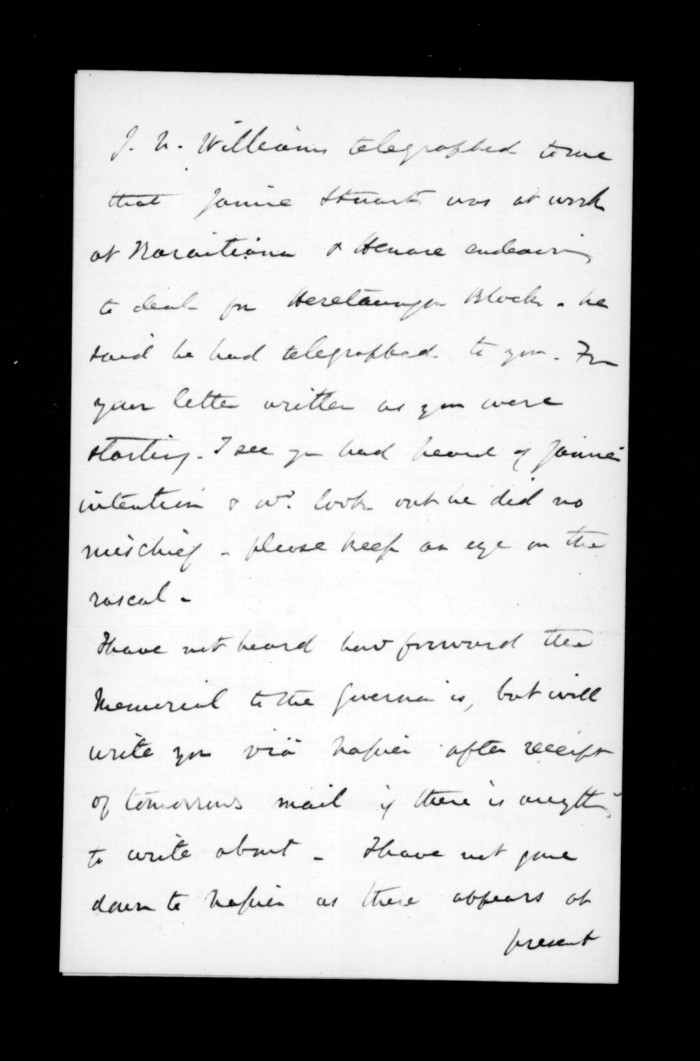 J. N. Williams telegraphed to me
that Jamie Stuart was at work
at Karaitiana & Henare endeavoring
to deal for Heretaunga Block. he
said he had telegraphed to you. Fm
your letter written as you were
starting. I see you had heard of Jamies
intention & wd. look out he did no
mischief - please keep an eye on the
rascal -
I have not heard how forward the
Memorial to the Governor is, but will
write you viâ Napier after receipt
of tomorrows mail if there is anything
to write about - I have not gone
down to Napier as there appears at
present